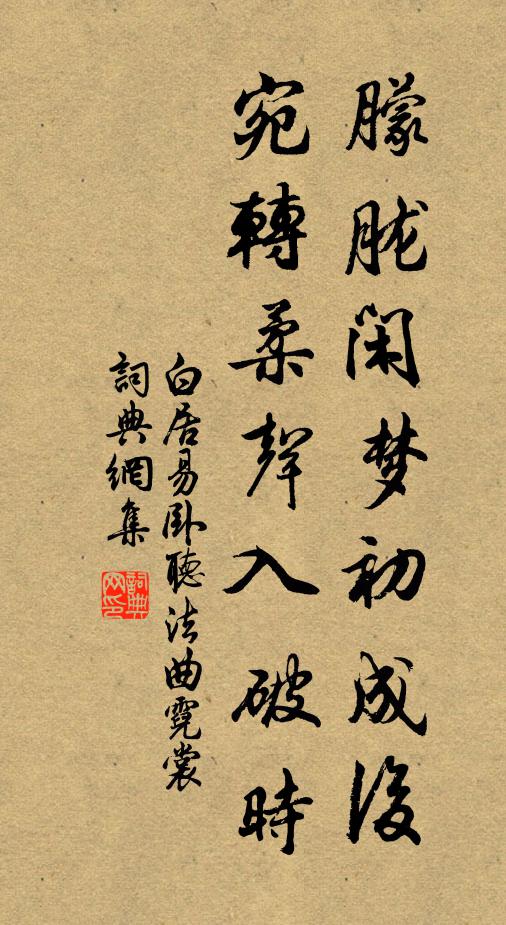 朦朧闲梦初成後
宛轉柔聲入破時
白居易卧聽法曲霓裳
詞典網集
詞典网印